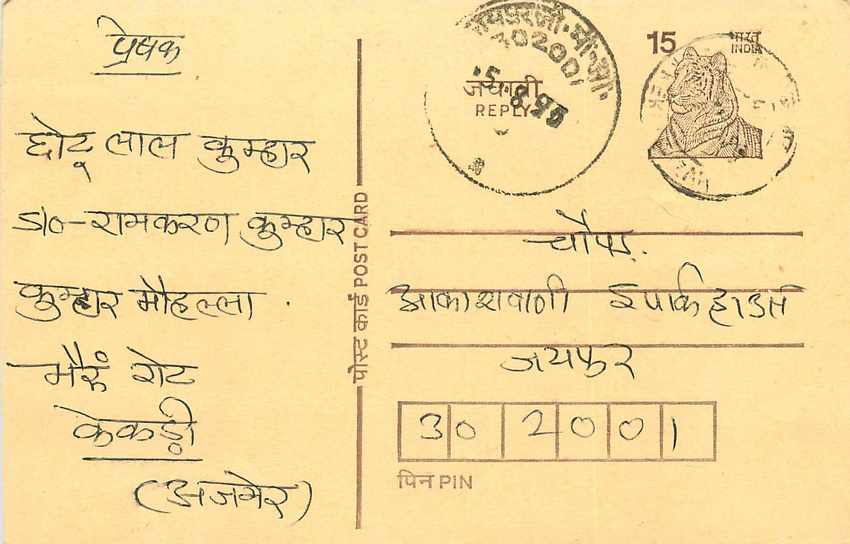 प्रेषक
छोटू लाल कुम्हार
S/o-रामकरण कुम्हार
कुम्हार मौहल्ला .
भैरुं गेट
केकड़ी
(अजमेर)
पोस्ट कार्ड POST CARD
302001
5.8.95
जवाबी
REPLY
15
भारत
INDIA
चौपड़.
आकाशवाणी
जयपुर
302001
पिन PIN